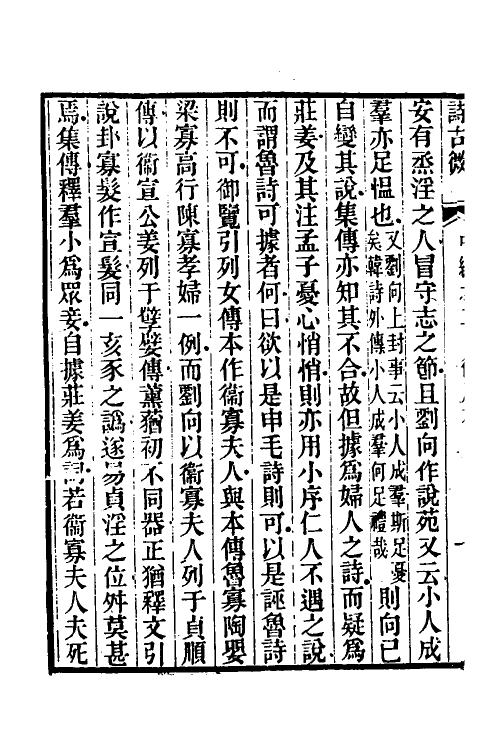 詩古微
安有烝淫之人冒守志之節且劉向作說苑又云小人成
羣亦足愠也又劉向上封事云小人成羣斯足憂矣韓詩外傳小人成羣何足禮哉則向已
自變其說集傳亦知其不合故但據爲婦人之詩而疑爲
莊姜及其注孟子憂心悄悄則亦用小序仁人不遇之說
而謂魯詩可據者何曰欲以是申毛詩則可以是誣魯詩
則不可御覽引列女傳本作衞寡夫人與本傳魯寡陶嬰
梁寡高行陳寡孝婦一例而劉向以衞寡夫人列于貞順
傳以衞宣公姜列于孽嬖傳薰蕕初不同器正猶釋文引
說卦寡髮作宣髮同一亥豕之譌遂易貞淫之位舛莫甚
焉集傳釋羣小爲眾妾自據莊姜爲詞若衞寡夫人夫死